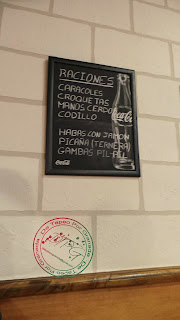 RACIONES
CARACOLES
CROQUETAS
MANOS CERDO
CODILLO
HABAS CON JAMON
PICAÑA (TERNERA)
GAMBAS PIL-PIL
Coca-Cola
Coca-Cola
De Tapas Por Granada